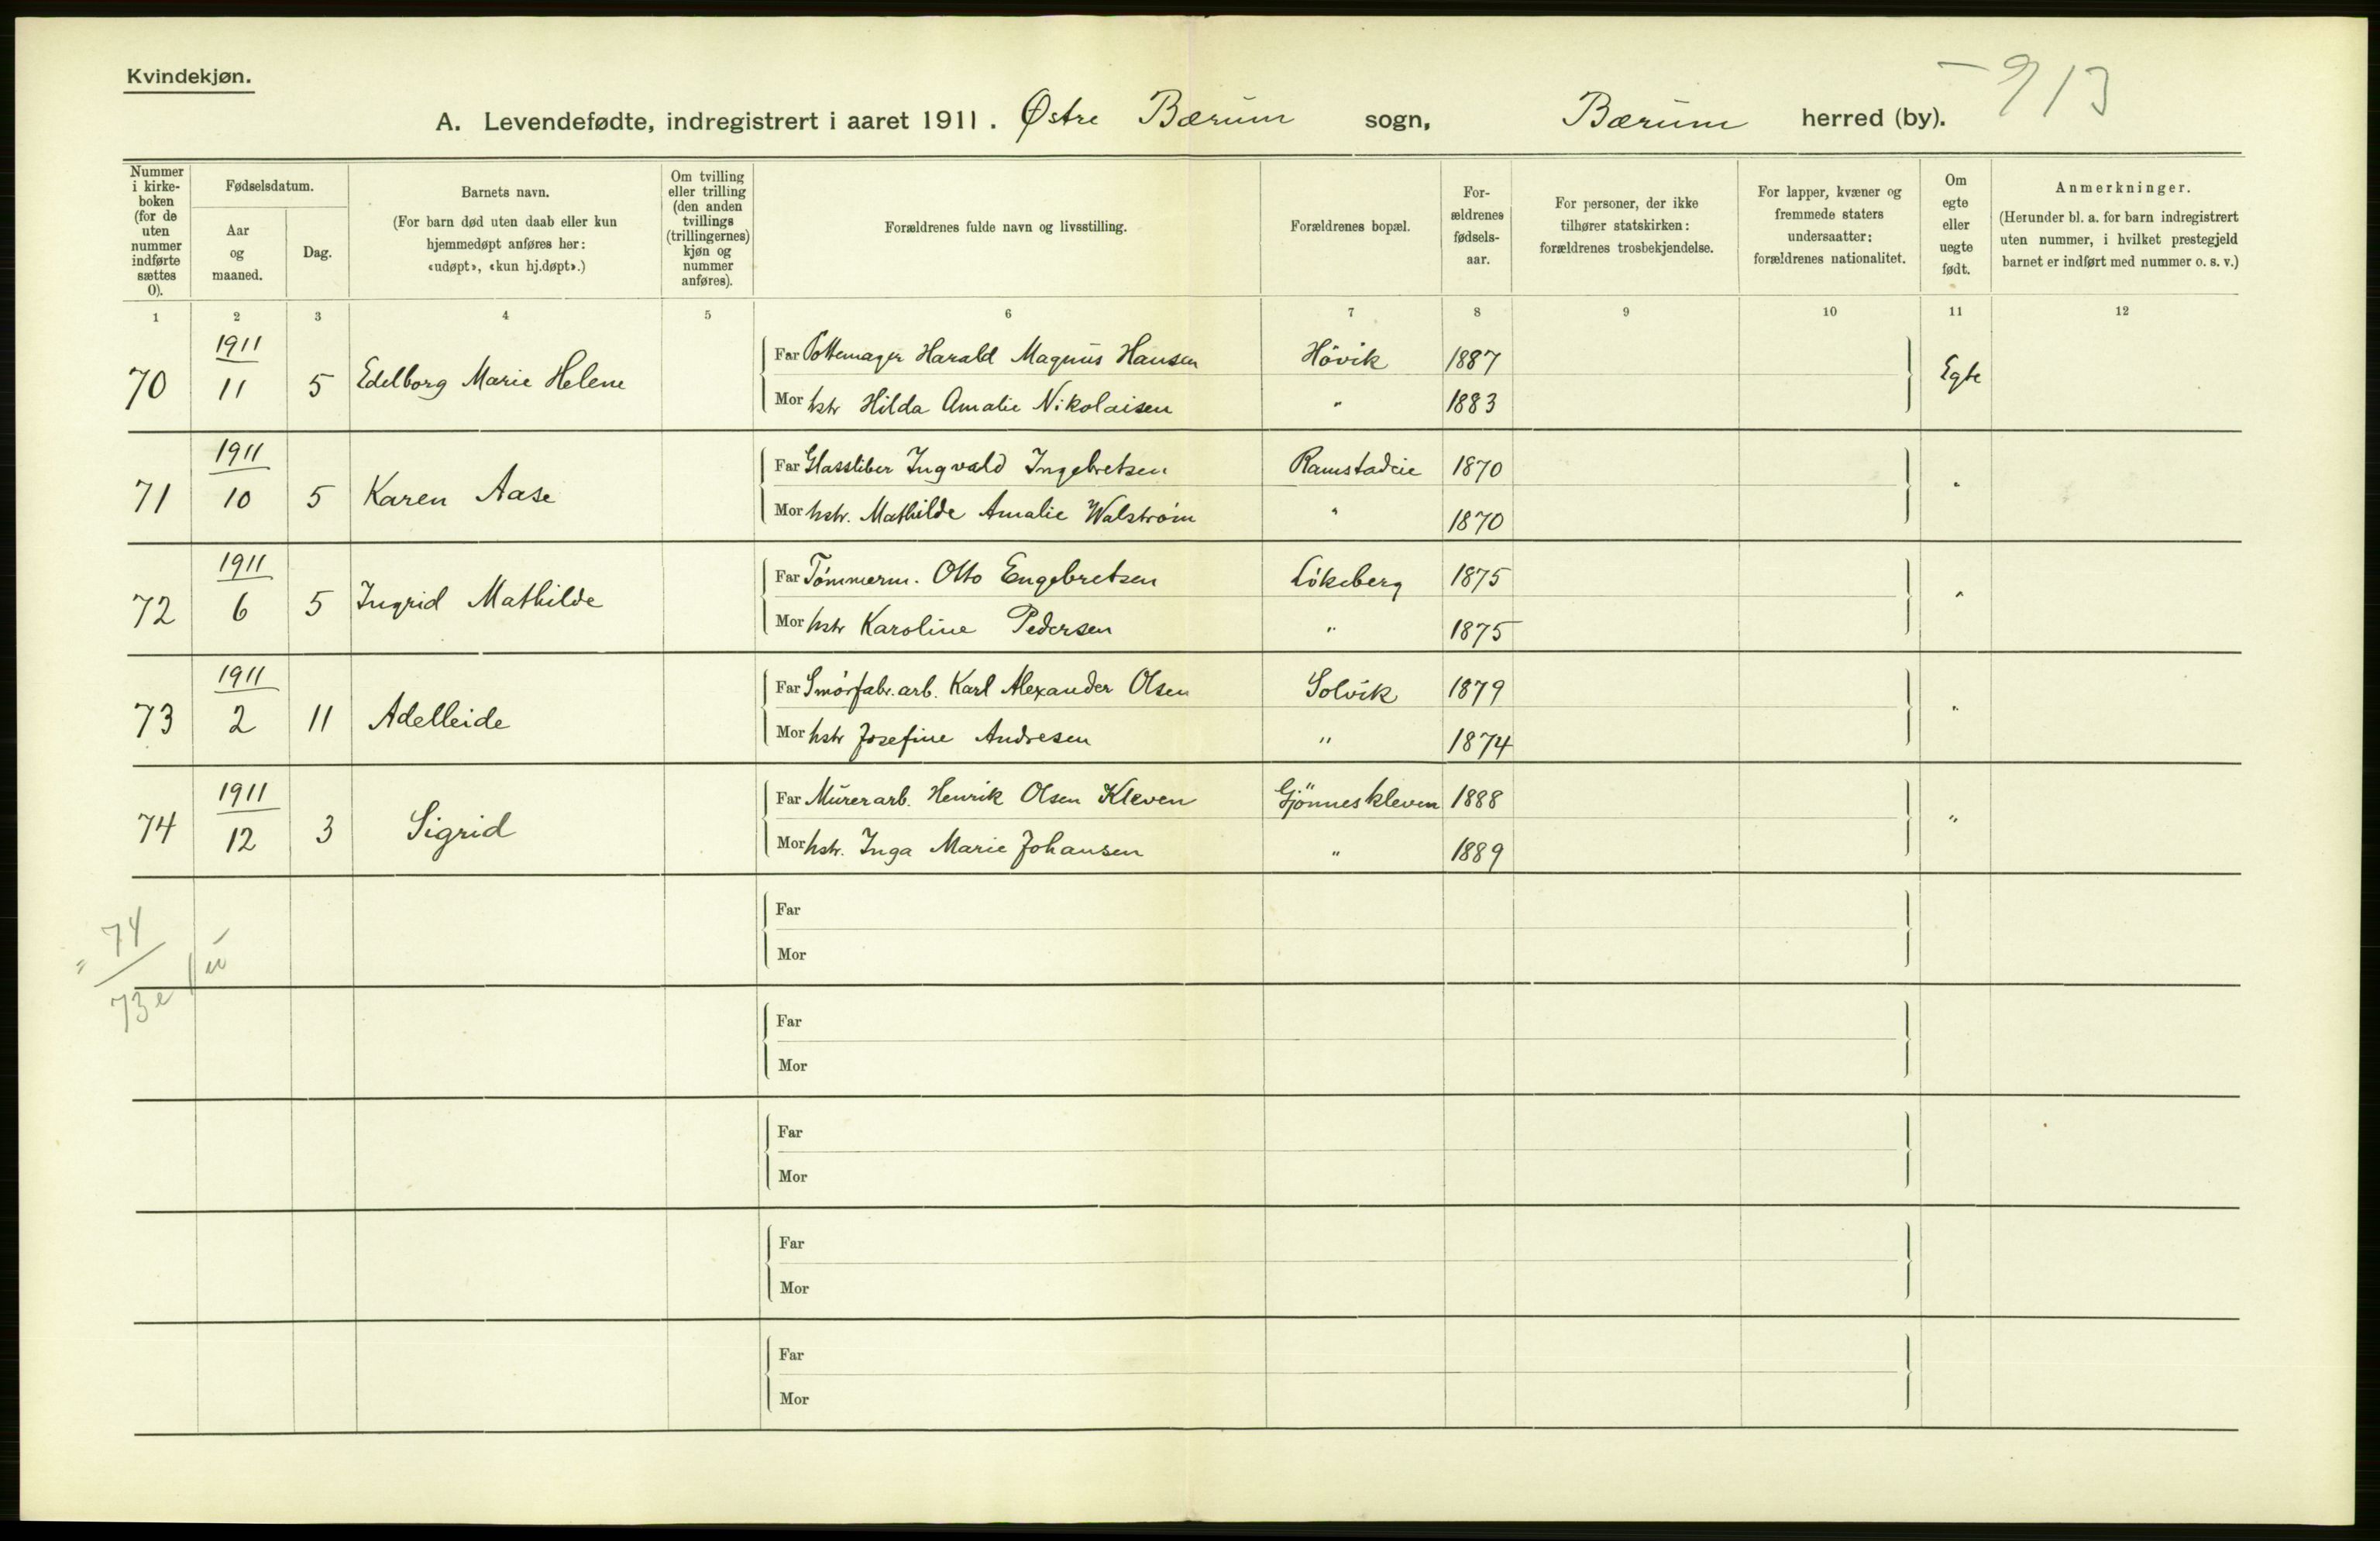 Kvindekjøn.
- 913
A. Levendefødte, indregistrert i aaret 1911. Østre Bærum sogn, Bærum herred (by).
Nummer i kirke-boken (for de uten nummer indførte sættes 0).
Fødselsdatum.
Aar og maaned.
Dag.
Barnets navn.
(For barn død uten daab eller kun hjemmedøpt anføres her: «udøpt», «kun hj.døpt».)
Om tvilling eller trilling (den anden tvillings (trillingernes) kjøn og nummer anføres).
Forældrenes fulde navn og livsstilling.
Forældrenes bopæl.
For-ældrenes fødsels-aar.
For personer, der ikke tilhører statskirken: forældrenes trosbekjendelse.
For lapper, kvæner og fremmede staters undersaatter: forældrenes nationalitet.
Om egte eller uegte født.
Anmerkninger.
(Herunder bl. a. for barn indregistrert uten nummer, i hvilket prestegjeld barnet er indført med nummer o. s. v.)
1 2 3 4 5 6 7 8 9 10 11 12
70 1911 11 5 Edelborg Marie Helene Far Pottemager Harald Magnus Hansen Hövik 1887 Egte
Mor hstr Hilda Amalie Nikolaisen " 1883
71 1911 10 5 Karen Aase Far Glassliber Ingvald Ingebretsen Ramstadeie 1870 "
Mor hstr. Mathilde Amalie Walstrøm " 1870
72 1911 6 5 Ingrid Mathilde Far Tömmerm. Otto Engebretsen Lökeberg 1875 "
Mor hstr Karoline Pedersen " 1875
73 1911 2 11 Adelleide Far Smörfabr. arb. Karl Alexander Olsen Solvik 1879 "
Mor hstr Josefine Andresen " 1874
74 1911 12 3 Sigrid Far Murerarb. Henrik Olsen Kleven Gjönneskleven 1888 "
Mor hstr. Inga Marie Johansen " 1889
Far
= 74
Mor
73 e
Far
Mor
Far
Mor
Far
Mor
Far
Mor